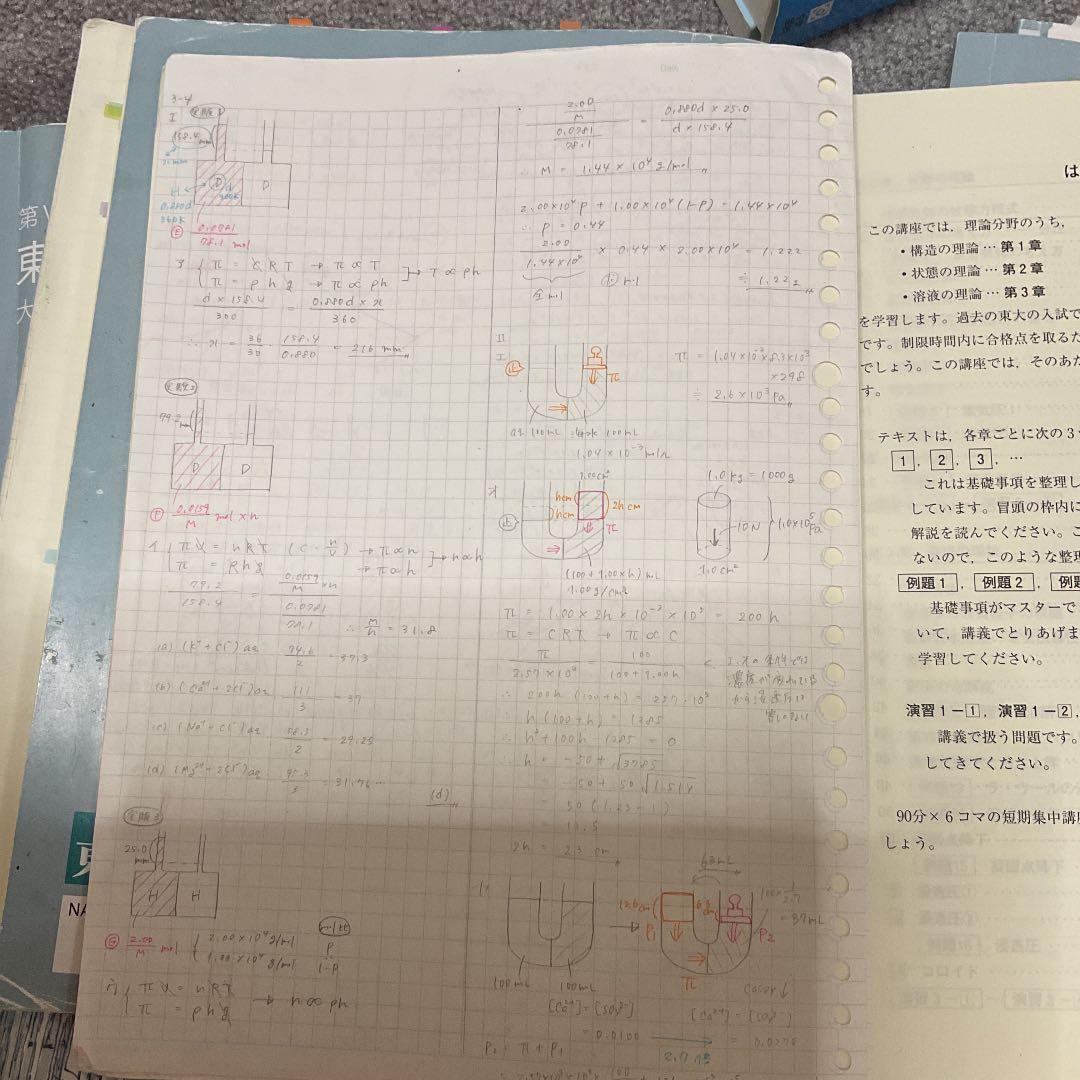 3-4
I 実験1
158.4 mm
D
d
300K
D
H
0.880d
360K
E 0.0781/78.1 mol
ア π = CRT → π∝T
π = ρhg → π∝ρh
→ T∝ρh
d×158.4/300 = 0.880d×x/360
∴ x = 36/30 · 158.4/0.880 = 216 mm
実験2
79.2 mm
D D
F 0.0159/M mol × n
イ πV = nRT (C = n/V) → π∝n
π = ρhg → π∝h
→ n∝h
79.2/158.4 = 0.0159/M × n / 0.0781/78.1
∴ M/n = 31.8
(a) (K⁺+Cl⁻)aq 74.6/2 = 37.3
(b) (Ca²⁺+2Cl⁻)aq 111/3 = 37
(c) (Na⁺+Cl⁻)aq 58.5/2 = 29.25
(d) (Mg²⁺+2Cl⁻)aq 95.3/3 = 31.76…
(d)
実験3
25.0 mm
H H
G 2.00/M mol
2.00×10⁴ g/mol
1.00×10⁴ g/mol
mol比
P
1-P
ウ πV = nRT
π = ρhg
→ n∝ρh
2.00/M / 0.0781/78.1 = 0.880d×25.0 / d×158.4
∴ M = 1.44×10⁴ g/mol
2.00×10⁴P + 1.00×10⁴(1-P) = 1.44×10⁴
∴ P = 0.44
2.00/1.44×10⁴ × 0.44 × 2.00×10⁴ = 1.222
全mol
≒ 1.22g
II
エ
正
π
π = 1.04×10⁻³×8.3×10³
×298
≒ 2.6×10³ Pa
aq 100mL 100mL
1.04×10⁻³ mol/L
オ
正
1.00cm²
hcm
hcm
2hcm
π
(100+1.00×h) mL
1.00g/cm³
1.0kg = 1000g
10N
1.0×10⁵ Pa
1.0cm²
π = 1.00×2h×10⁻³×10⁵ = 200h
π = CRT → π∝C
π/2.57×10³ = 100/100+1.00h
∴ 200h(100+h) = 257×10³
h(100+h) = 1285
∴ h²+100h-1285 = 0
∴ h = -50+√3785
= -50+50√1.514
= 50(1.23-1)
= 11.5
2h = 23 cm
100mL 100mL
12.6cm
P₁
63mL
P₂
π
100×1/2.7
= 37mL
[Ca²⁺] = [SO₄²⁻]
= 0.0100
2.7倍
CaSO₄↓
[Ca²⁺] = [SO₄²⁻]
= 0.0270
P₂ = π + P₁
第
東
大
NA
は
この講座では，理論分野のうち，
・構造の理論 … 第1章
・状態の理論 … 第2章
・溶液の理論 … 第3章
を学習します。過去の東大の入試で
です。制限時間内に合格点を取るた
でしょう。この講座では，そのあた
す。
テキストは，各章ごとに次の3
1，2，3，…
これは基礎事項を整理し
しています。冒頭の枠内に
解説を読んでください。こ
ないので，このような整理
例題1，例題2，例題
基礎事項がマスターで
いて，講義でとりあげま
学習してください。
演習1－1，演習1－2
講義で扱う問題です。
してきてください。
90分×6コマの短期集中講座
しょう。